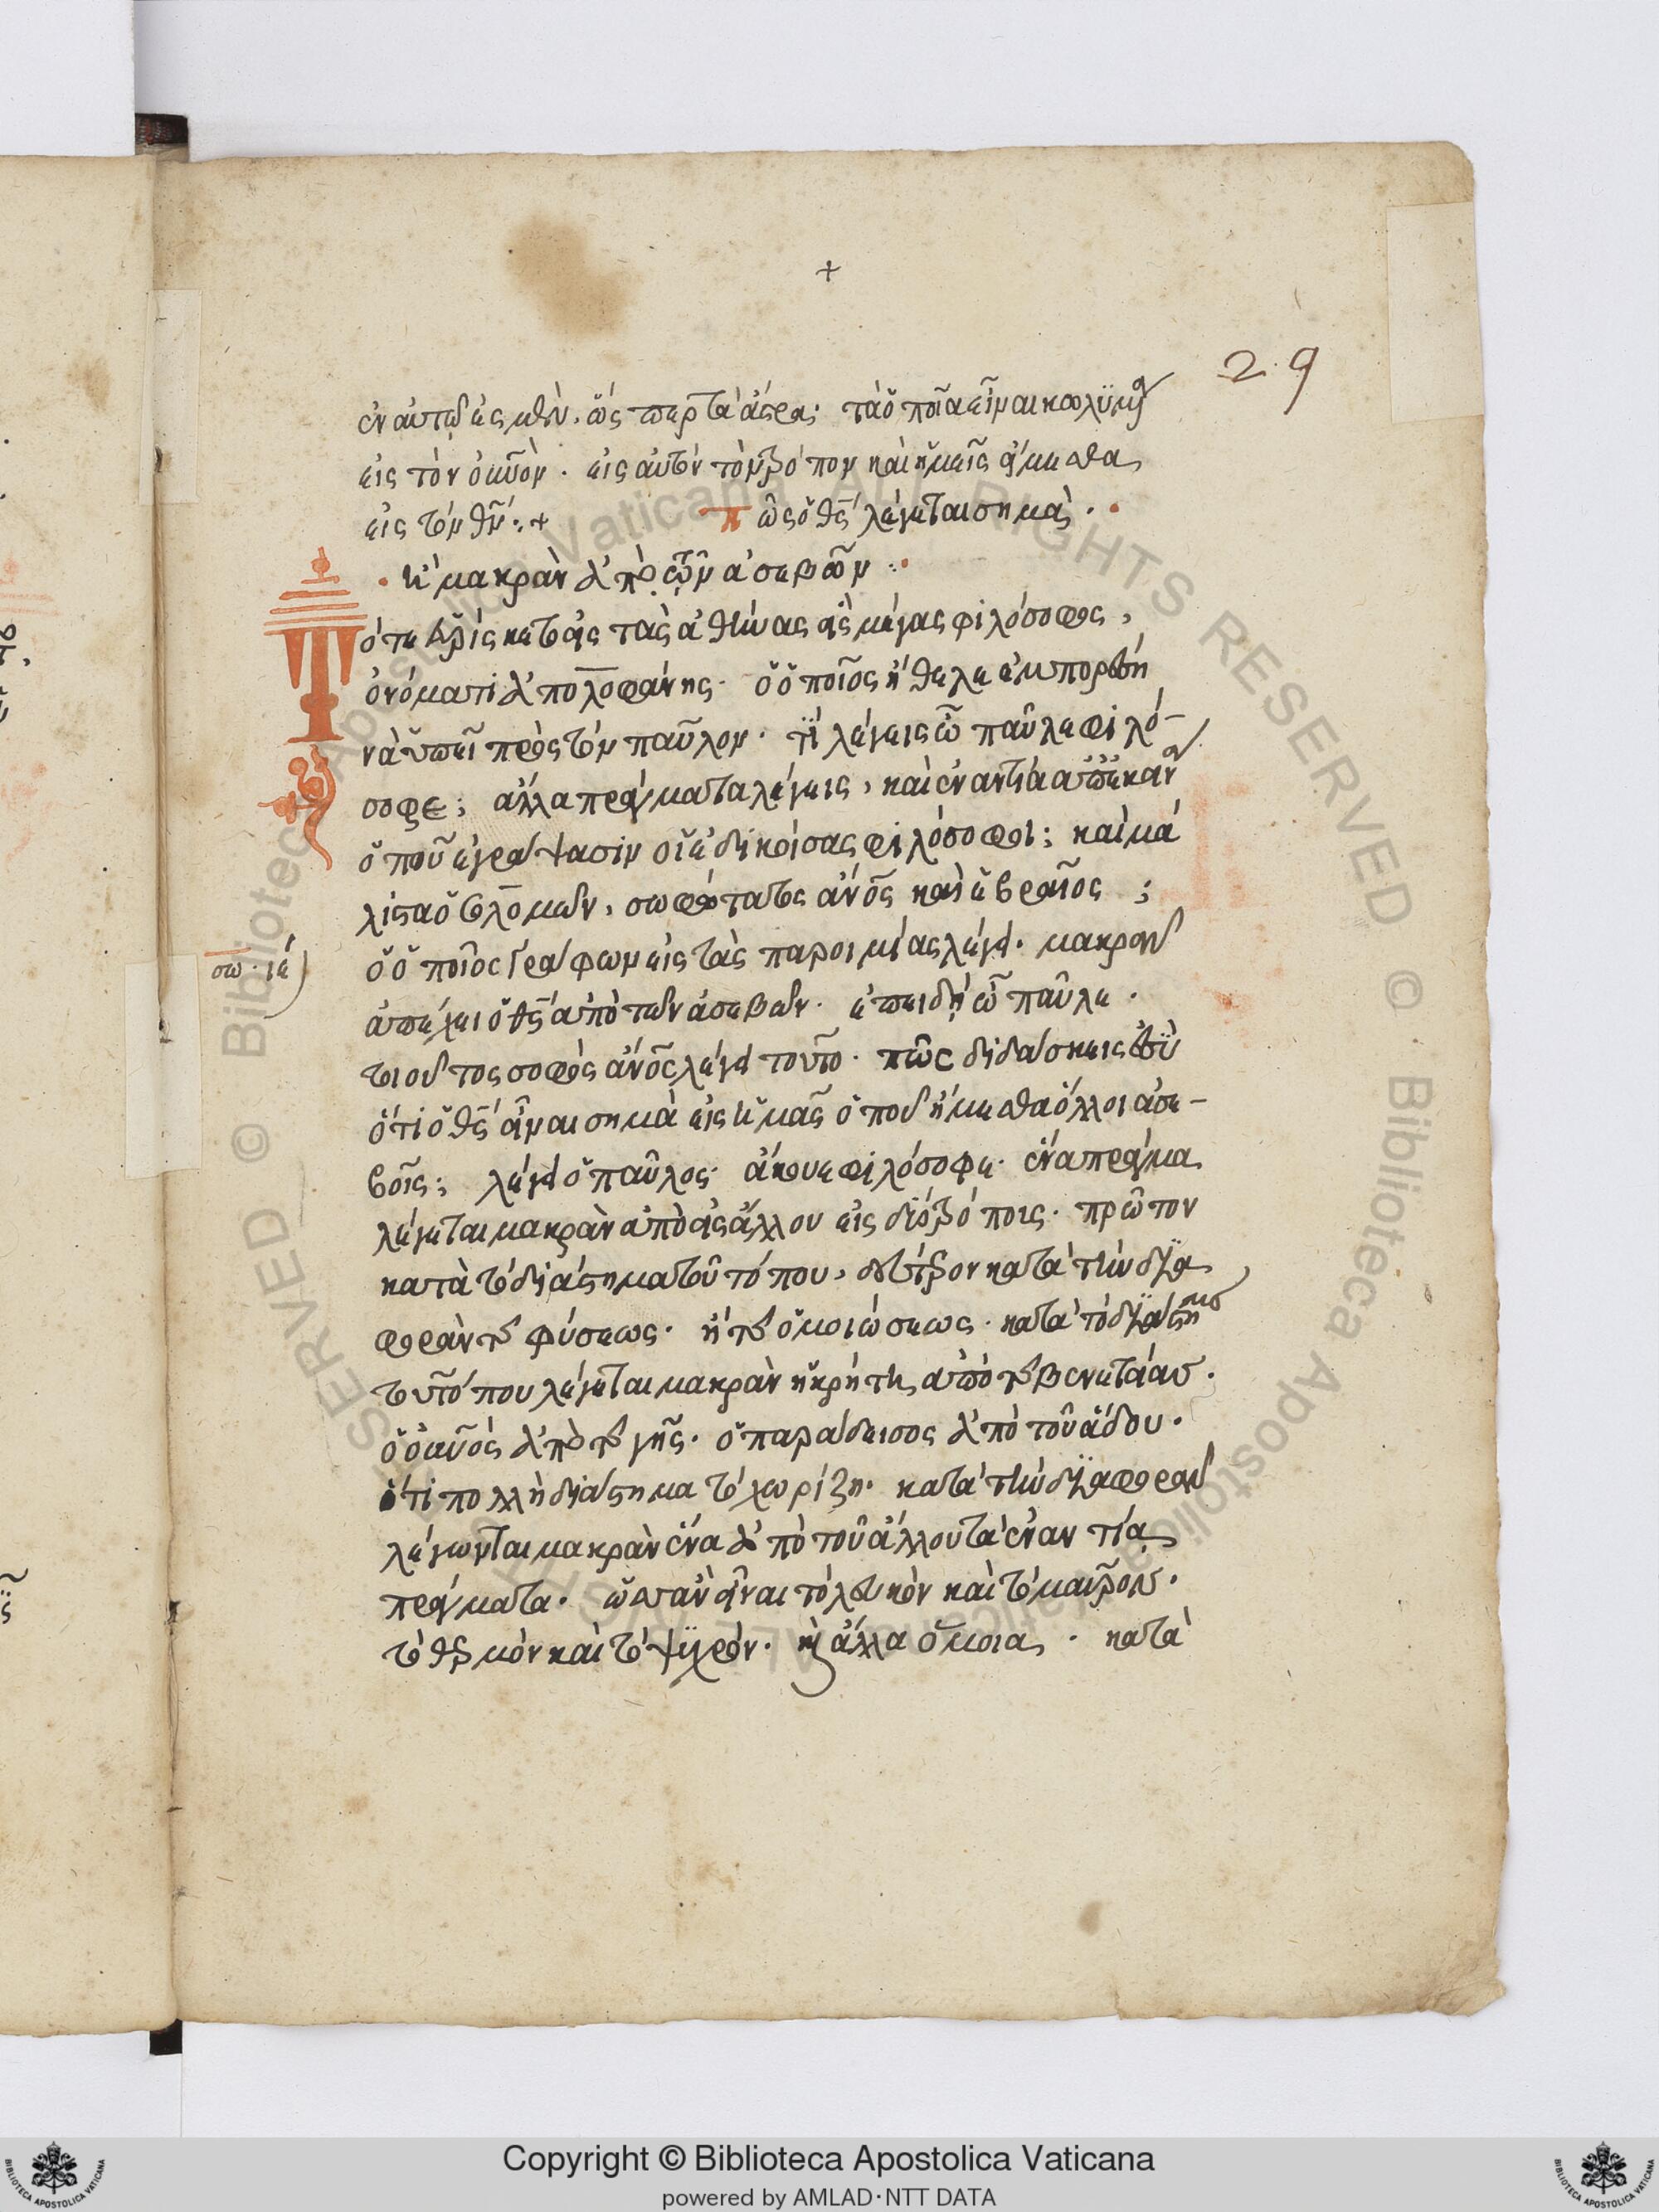 +
29
ἐν αὐτῷ ἐσμὲν. ὥς περ τὰ ἄστρα· τὰ ὁποῖα εἶναι κολϋμένα
εἰς τὸν οὐνὸν. εἰς αὐτὸν τὸν τρόπον καὶ ἡμεῖς εἴμεσθα
εἰς τὸν θν̅. + πῶς ὁ θς̅ λέγεται σημὰ.
κὶ μακρὰν ἀπὸ τῶν ἀσεβῶν:
Τότε εὑρίσκετο εἰς τὰς ἀθήνας εἷς μέγας φιλόσοφος,
ὀνόματι ἀπολοφάνης. ὁ ὁποῖος ἤθελε ἐμπορεθῆ
νὰ ὑπεῖ πρὸς τὸν παῦλον. τί λέγεις ὦ παῦλε φιλό-
σοφε; ἄλλα πράγματα λέγεις, καὶ ἐναντία ἀπὸ ἐκεῖνα
ὁποῦ ἐγράψασιν οἱ ἐδικοί σας φιλόσοφοι; καὶ μά
λιστα ὁ σολομὼν, σοφώτατος ἀνος̅ καὶ ἑβραῖος;
σω. ιέ
ὁ ὁποῖος γράφων εἰς τὰς παροιμίας λέγει. μακρὰν
ἀπέχει ὁ θς̅ ἀπὸ τῶν ἀσεβῶν. ἐπειδὴ ὦ παῦλε.
τοιοῦτος σοφὸς ἀνος̅ λέγει τοῦτο. πῶς διδάσκεις ἐσὺ
ὅτι ὁ θς̅ εἶναι σημὰ εἰς ἡμᾶς ὁποῦ ἤμεσθα ὅλλοι ἀσε-
βοῖς; λέγει ὁ παῦλος· ἄκουε φιλόσοφε. ἕνα πράγμα
λέγεται μακρὰν ἀπὸ εἰς ἄλλου εἰς δύο τρόποις. πρῶτον
κατὰ τὸ διάστημα τοῦ τόπου, δεύτερον κατὰ τὴν δια
φορὰν τῆς φύσεως. ἢ τῆς ὁμοιώσεως. κατὰ τὸ διάστημα
τοῦ τόπου λέγεται μακρὰν ἡ κρήτη ἀπὸ τῆς βενετίας.
ὁ οὐνὸς ἀπὸ τῆς γῆς. ὁ παράδεισος ἀπὸ τοῦ ἅδου.
ὅτι πολλὴ διάστημα τὸ χωρίζη. κατὰ τὴν διαφορὰν
λέγωνται μακρὰν ἕνα ἀπὸ τοῦ ἄλλου τὰ ἐναντία
πράγματα. ὥσπαν εἶναι τὸ λευκὸν καὶ τὸ μαῦρον.
τὸ θερμὸν καὶ τὸ ψυχρόν. καὶ ἄλλα ὅμοια. κατὰ
Copyright © Biblioteca Apostolica Vaticana
powered by AMLAD·NTT DATA